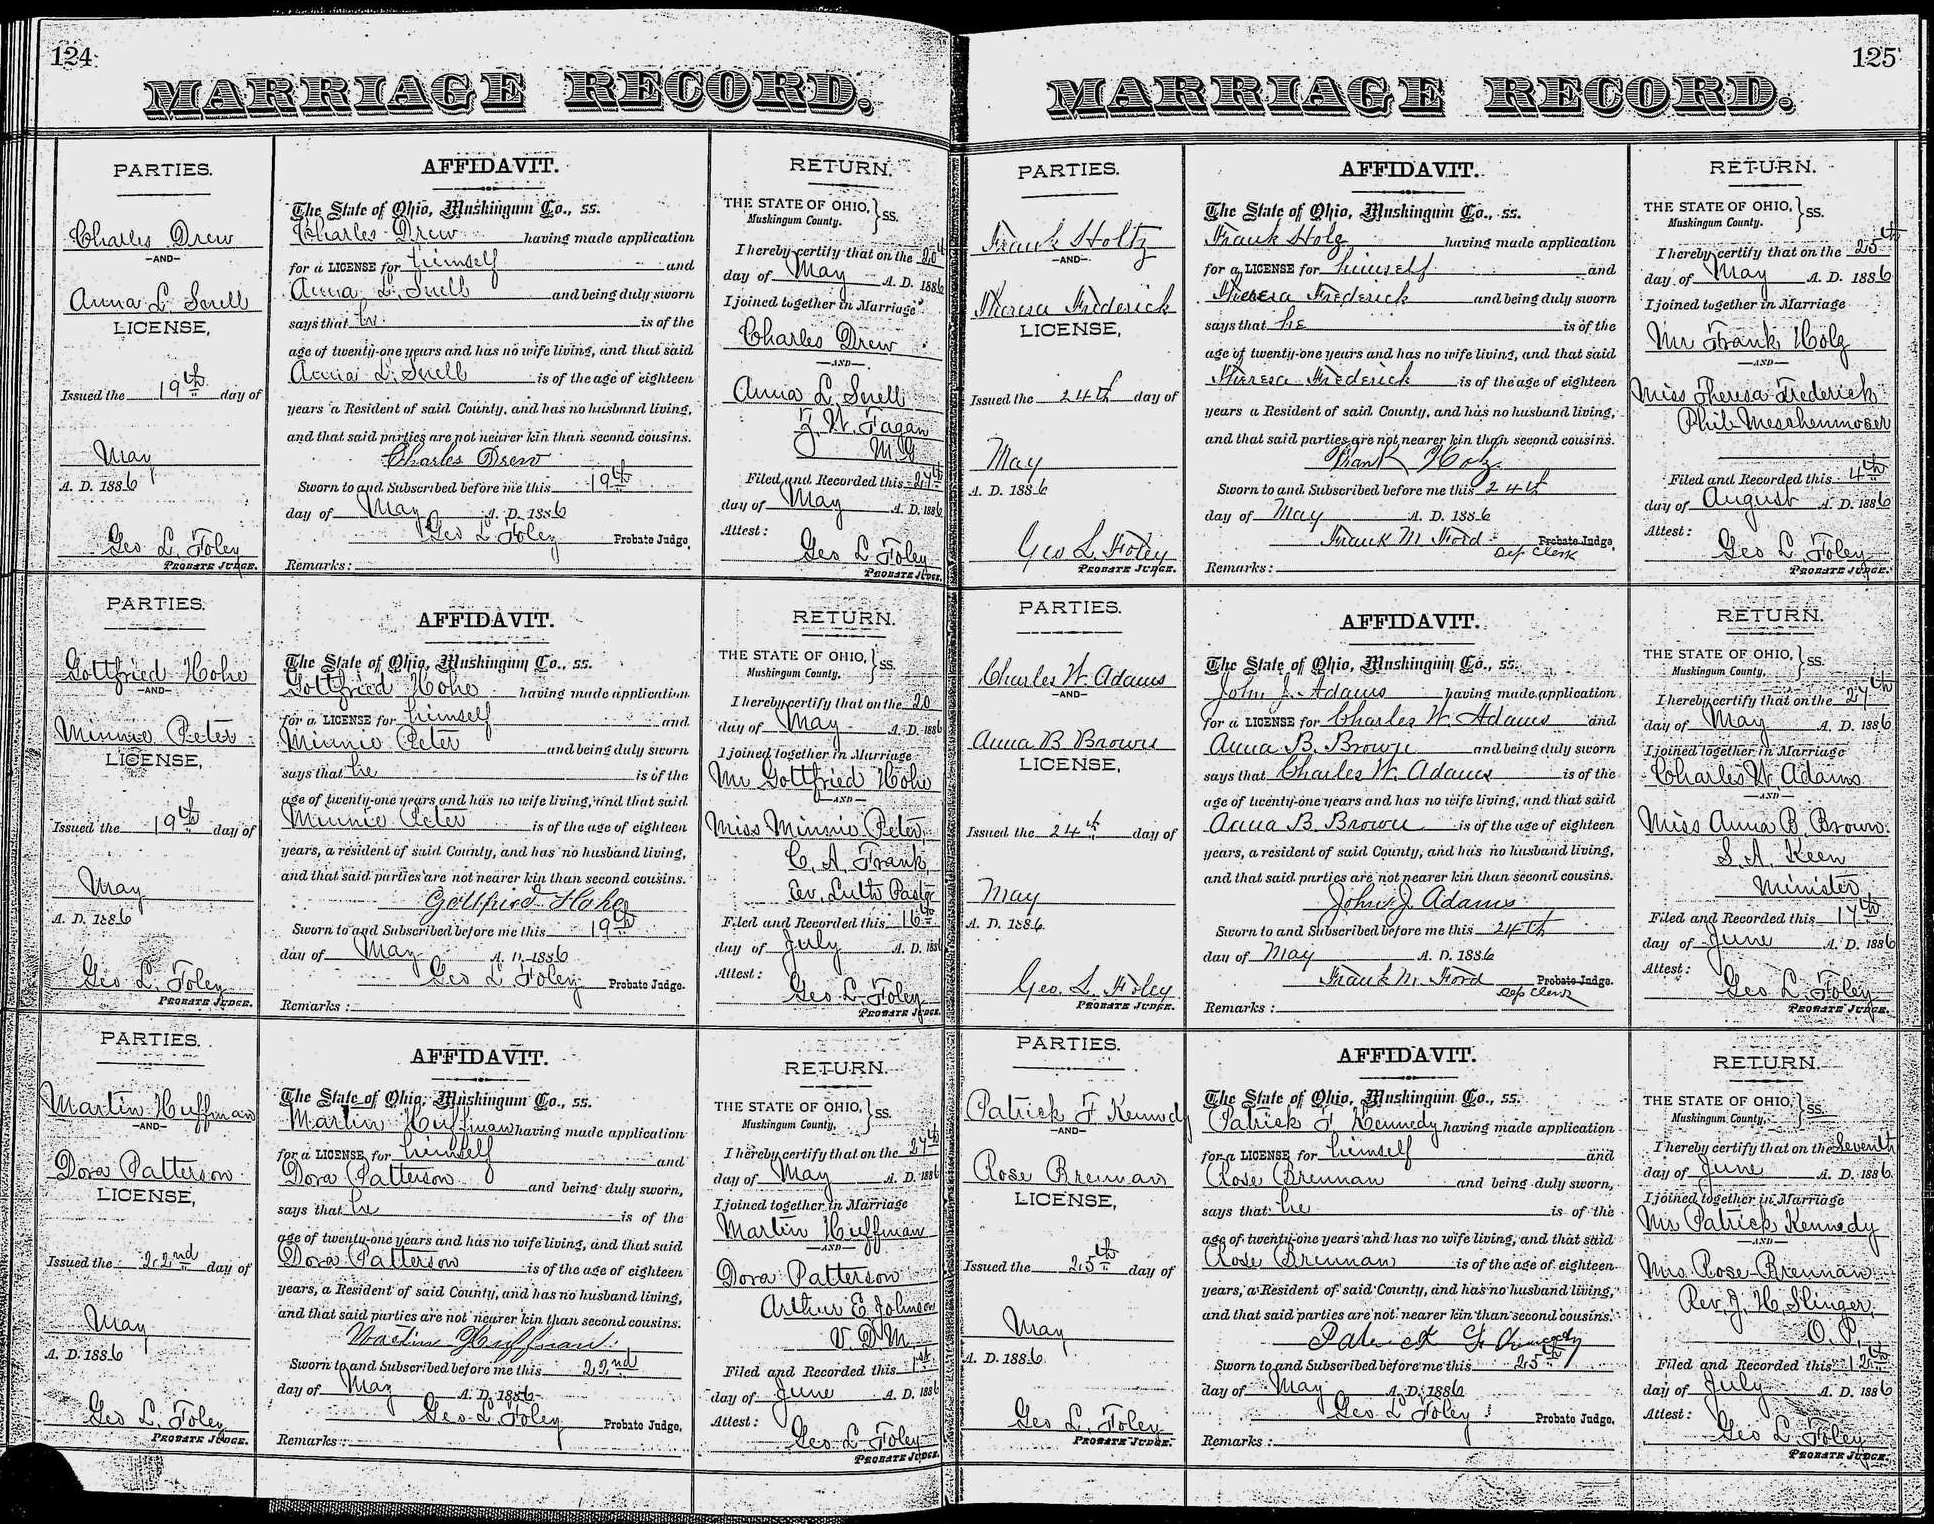 124
MARRIAGE RECORD.
PARTIES.
Charles Drew
-AND-
Anna L. Snell
LICENSE,
Issued the 19th day of
May
A. D. 1886
Geo L. Foley
PROBATE JUDGE.
AFFIDAVIT.
The State of Ohio, Muskingum Co., ss.
Charles Drew having made application
for a LICENSE for himself and
Anna L. Snell and being duly sworn
says that he is of the
age of twenty-one years and has no wife living, and that said
Anna L. Snell is of the age of eighteen
years a Resident of said County, and has no husband living,
and that said parties are not nearer kin than second cousins.
Charles Drew
Sworn to and Subscribed before me this 19th
day of May A. D. 1886
Geo L Foley Probate Judge,
Remarks:
RETURN.
THE STATE OF OHIO, } SS.
Muskingum County.
I hereby certify that on the 20th
day of May A. D. 1886
I joined together in Marriage
Charles Drew
-AND-
Anna L. Snell
Z. W. Fagan
M.G
Filed and Recorded this 27th
day of May A. D. 1886
Attest:
Geo L Foley
PROBATE JUDGE.
PARTIES.
Gottfried Hohe
-AND-
Minnie Peter
LICENSE,
Issued the 19th day of
May
A. D. 1886
Geo L. Foley
PROBATE JUDGE.
AFFIDAVIT.
The State of Ohio, Muskingum Co., ss.
Gottfried Hohe having made application
for a LICENSE for himself and
Minnie Peter and being duly sworn
says that he is of the
age of twenty-one years and has no wife living, and that said
Minnie Peter is of the age of eighteen
years, a resident of said County, and has no husband living,
and that said parties are not nearer kin than second cousins.
Gottfried Hohe
Sworn to and Subscribed before me this 19th
day of May A. D. 1886
Geo L Foley Probate Judge.
Remarks:
RETURN.
THE STATE OF OHIO, } SS.
Muskingum County,
I hereby certify that on the 20
day of May A. D. 1886
I joined together in Marriage
Mr Gottfried Hohe
-AND-
Miss Minnie Peter,
C. A. Frank
Ev. Luth Pastor
Filed and Recorded this 16th
day of July A. D. 1886
Attest:
Geo L. Foley
PROBATE JUDGE.
PARTIES.
Martin Huffman
-AND-
Dora Patterson
LICENSE,
Issued the 22nd day of
May
A. D. 1886
Geo L. Foley
PROBATE JUDGE.
AFFIDAVIT.
The State of Ohio, Muskingum Co., ss.
Martin Huffman having made application
for a LICENSE for himself and
Dora Patterson and being duly sworn,
says that he is of the
age of twenty-one years and has no wife living, and that said
Dora Patterson is of the age of eighteen
years, a Resident of said County, and has no husband living,
and that said parties are not nearer kin than second cousins.
Martin Huffman
Sworn to and Subscribed before me this 22nd
day of May A. D. 1886
Geo L Foley Probate Judge,
Remarks:
RETURN.
THE STATE OF OHIO, } SS.
Muskingum County,
I hereby certify that on the 27th
day of May A. D. 1886
I joined together in Marriage
Martin Huffman
-AND-
Dora Patterson
Arthur E. Johnson
V. D. M.
Filed and Recorded this 1st
day of June A. D. 1886
Attest:
Geo L Foley
PROBATE JUDGE.
125
MARRIAGE RECORD.
PARTIES.
Frank Holtz
-AND-
Theresa Frederick
LICENSE,
Issued the 24th day of
May
A. D. 1886
Geo L Foley
PROBATE JUDGE.
AFFIDAVIT.
The State of Ohio, Muskingum Co., ss.
Frank Holz having made application
for a LICENSE for himself and
Theresa Frederick and being duly sworn
says that he is of the
age of twenty-one years and has no wife living, and that said
Theresa Frederick is of the age of eighteen
years a Resident of said County, and has no husband living,
and that said parties are not nearer kin than second cousins.
Frank Holz
Sworn to and Subscribed before me this 24th
day of May A. D. 1886
Frank M. Ford Probate Judge,
Dep Clerk
Remarks:
RETURN.
THE STATE OF OHIO, } SS.
Muskingum County.
I hereby certify that on the 25th
day of May A. D. 1886
I joined together in Marriage
Mr Frank Holz
-AND-
Miss Theresa Frederick
Phil Messhenmoser
Filed and Recorded this 4th
day of August A. D. 1886
Attest:
Geo L Foley
PROBATE JUDGE.
PARTIES.
Charles W. Adams
-AND-
Anna B Brown
LICENSE,
Issued the 24th day of
May
A. D. 1886.
Geo. L. Foley
PROBATE JUDGE.
AFFIDAVIT.
The State of Ohio, Muskingum Co., ss.
John J. Adams having made application
for a LICENSE for Charles W. Adams and
Anna B. Brown and being duly sworn
says that Charles W. Adams is of the
age of twenty-one years and has no wife living, and that said
Anna B Brown is of the age of eighteen
years, a resident of said County, and has no husband living,
and that said parties are not nearer kin than second cousins.
John J. Adams
Sworn to and Subscribed before me this 24th
day of May A. D. 1886
Frank M. Ford Probate Judge.
Dep Clerk
Remarks:
RETURN.
THE STATE OF OHIO, } SS.
Muskingum County,
I hereby certify that on the 27th
day of May A. D. 1886
I joined together in Marriage
Charles W. Adams
-AND-
Miss Anna B. Brown.
S. A. Keen
Minister
Filed and Recorded this 17th
day of June A. D. 1886
Attest:
Geo L. Foley
PROBATE JUDGE.
PARTIES.
Patrick F Kennedy
-AND-
Rose Brennan
LICENSE,
Issued the 25th day of
May
A. D. 1886.
Geo L. Foley
PROBATE JUDGE.
AFFIDAVIT.
The State of Ohio, Muskingum Co., ss.
Patrick F Kennedy having made application
for a LICENSE for himself and
Rose Brennan and being duly sworn,
says that he is of the
age of twenty-one years and has no wife living, and that said
Rose Brennan is of the age of eighteen
years, a Resident of said County, and has no husband living,
and that said parties are not nearer kin than second cousins.
Patrick F. Kennedy
Sworn to and Subscribed before me this 25th
day of May A. D. 1886
Geo L Foley Probate Judge,
Remarks:
RETURN.
THE STATE OF OHIO, } SS.
Muskingum County,
I hereby certify that on the Seventh
day of June A. D. 1886.
I joined together in Marriage
Mr Patrick Kennedy
-AND-
Mrs Rose Brennan
Rev. J. H. Slinger,
O. P.
Filed and Recorded this 12th
day of July A. D. 1886
Attest:
Geo L. Foley
PROBATE JUDGE.